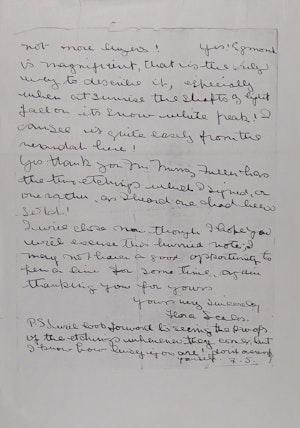 not more buyers! Yes! Egmont
is magnificent, that is the only
way to describe it, especially
when at sunrise the shafts of light
fall on its snow white peak! I
can see it quite easily from the
verandah here!
Yes thank you Mrs Murray Fuller has
the tiny etchings which I signed, or
one rather, as I heard one had been
sold!
I will close now though I hope you
will excuse this hurried note; I
may not have a good opportunity to
pen a line for some time. Again
thanking you for yours
Yours very sincerely
Flora Scales.
P.S. I will look forward to seeing the proofs
of the etchings whenever they come, but
I know how busy you are! don't
yourself. F.S.